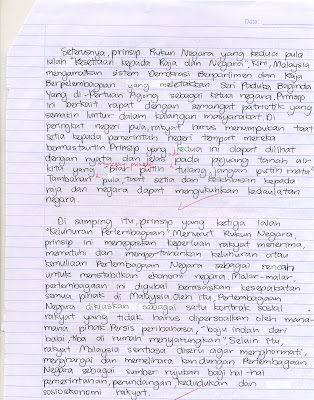 Date:
Seterusnya, prinsip Rukun Negara yang kedua pula
ialah "Kesetiaan kepada Raja dan Negara". Kini, Malaysia
mengamalkan sistem Demokrasi Berparlimen dan Raja
Berpelembagaan yang meletakkan Seri Paduka Baginda
Yang di-Pertuan Agong sebagai ketua negara. Prinsip
ini berkait rapat dengan semangat patriotik yang
semakin luntur dalam kalangan masyarakat. Di
peringkat negeri pula, rakyat harus menumpukan taat
setia kepada pemerintah negeri tempat mereka
bermastautin. Prinsip yang kedua ini dapat dilihat
dengan nyata dan jelas pada pejuang tanah air
kita yang "biar putih tulang, jangan putih mata"
Tambahan pula, taat setia dan kepada
raja dan negara dapat mengukuhkan kedaulatan
negara.
Di samping itu, prinsip yang ketiga ialah
"Keluhuran Perlembagaan". Menurut Rukun Negara,
prinsip ini menegaskan keperluan rakyat menerima,
mematuhi dan mempertahankan keluhuran atau
kemuliaan Perlembagaan Negara sebagai
untuk menstabilkan ekonomi negara.
perlembagaan ini digubal berasaskan kesepakatan
semua pihak di Malaysia. Oleh itu, Perlembagaan
Negara sebagai satu kontrak sosial
rakyat yang tidak harus dipersoalkan oleh mana-
mana pihak. Persis peribahasa, "baju indah dari
balai, tiba di rumah menyarungkan". Selain itu,
rakyat Malaysia sentiasa diseru agar menghormati,
menghargai dan memelihara kandungan Perlembagaan
Negara sebagai sumber rujukan bagi hal-hal
pemerintahan, perundangan, kedudukan dan
sosioekonomi rakyat.